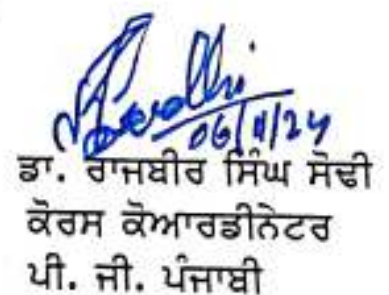 06/11/24
ਡਾ. ਰਾਜਬੀਰ ਸਿੰਘ ਸੋਢੀ
ਕੋਰਸ ਕੋਆਰਡੀਨੇਟਰ
ਪੀ. ਜੀ. ਪੰਜਾਬੀ